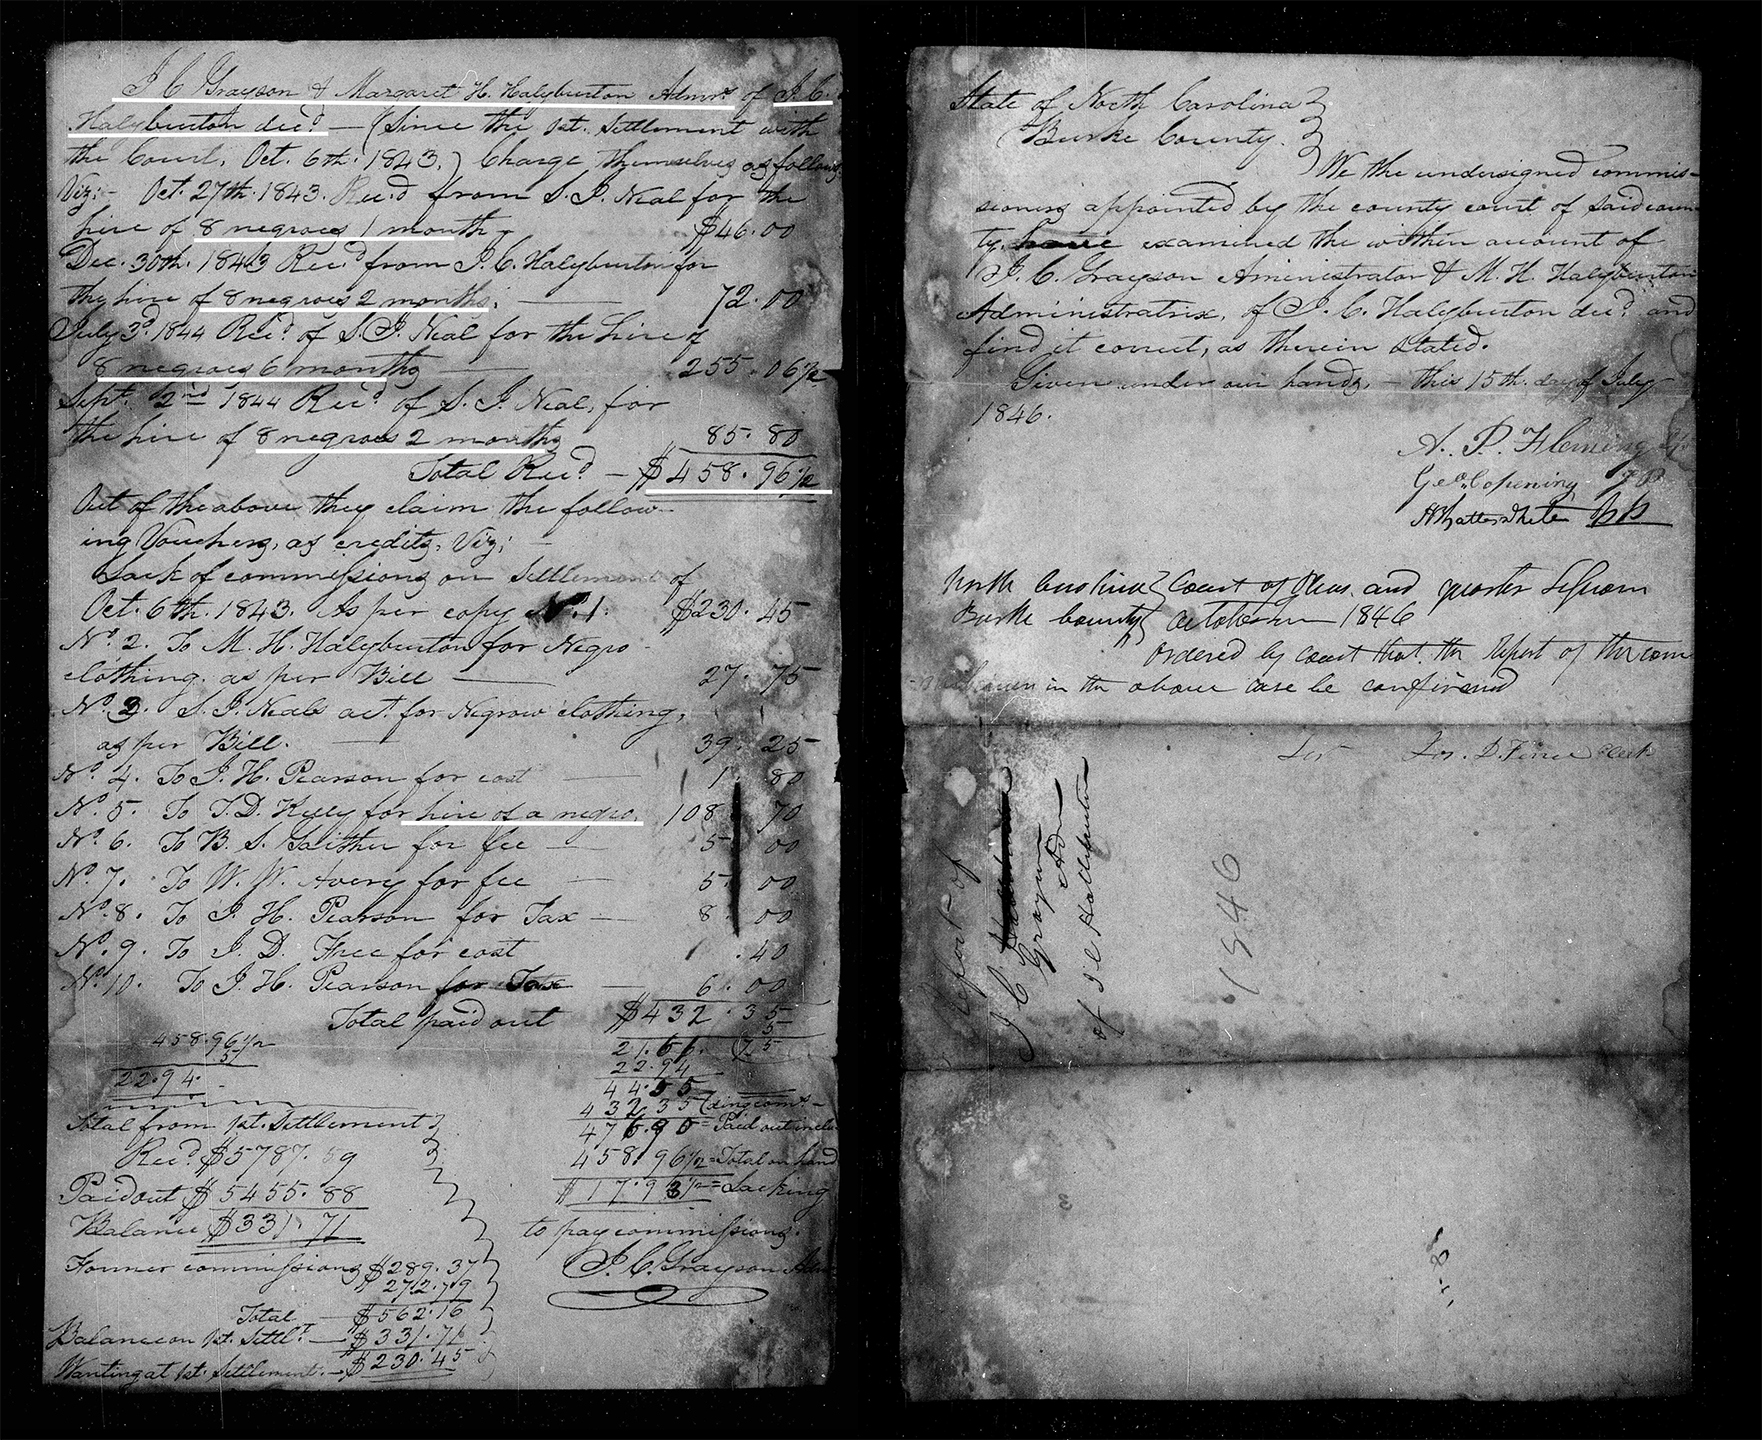 J. C. Grayson & Margaret H. Halyburton Admrs. of J. C.
Halyburton decd. — (Since the 1st. Settlement with
the Court, Oct. 6th. 1843.) Charge themselves as follows
Viz:- Oct. 27th. 1843. Recd from S. J. Neal for the
hire of 8 negroes 1 month — $46.00
Dec. 30th. 1843 Recd from J. C. Halyburton for
the hire of 8 negroes 2 months, — 72.00
July 3d. 1844 Recd. of S. J. Neal for the hire of
8 negroes 6 months — 255.06½
Sept. 2nd 1844 Recd. of S. J. Neal, for
the hire of 8 negroes 2 months 85.80
Total Recd — $458.96½
Out of the above they claim the follow-
ing Vouchers, as credits, Viz;
Lack of commissions on Settlement of
Oct. 6th. 1843. As per copy No. 1. $230.45
No. 2. To M. H. Halyburton for Negro
clothing. as per Bill — 27.75
No. 3. S. J. Neals act. for Negrow clothing,
as per Bill. — 39.25
No. 4. To J. H. Pearson for cost — 1.80
No. 5. To T. D. Kelly for hire of a negro, 108.70
No. 6. To B. S. Gaither for fee — 5.00
No. 7. To W. W. Avery for fee — 5.00
No. 8. To J. H. Pearson for Tax — 8.00
No. 9. To J. D. Free for cost .40
No. 10. To J. H. Pearson for Tax — 6.00
Total paid out $432.35
5
458.96½
5
22.94.
21.66. 75
22.94
44.55
432.35 (ding coms. -
476.90 = Paid out inclu
458.96½ = Total on hand
$17.93½ = Lacking
to pay commissions.
J. C. Grayson
Total from 1st. Settlement
Recd. $5787.59
Paid out $5455.88
Balance $331.71
Former commissions $289.37
$272.79
Total — $562.16
Balance on 1st. Settlt. — $331.71
Wanting at 1st. Settlement. — $230.45
State of North Carolina
Burke County.
We the undersigned commis-
sioners appointed by the county court of said coun-
ty, have examined the within account of
J. C. Grayson Aministrator & M. H. Halyburton
Administratrix, of J. C. Halyburton decd. and
find it correct, as therein stated.
Given under our hands, — this 15th. day of July
1846.
A. P. Fleming
Geo. Copening JP
North Carolina Court of Pleas and quarter Sessions
Burke county October 1846
Ordered by court that the Report of the com
in the above case be confirmed
Clerk
Report of
J C
Grayson
Adm
of J C Halliburton
1846